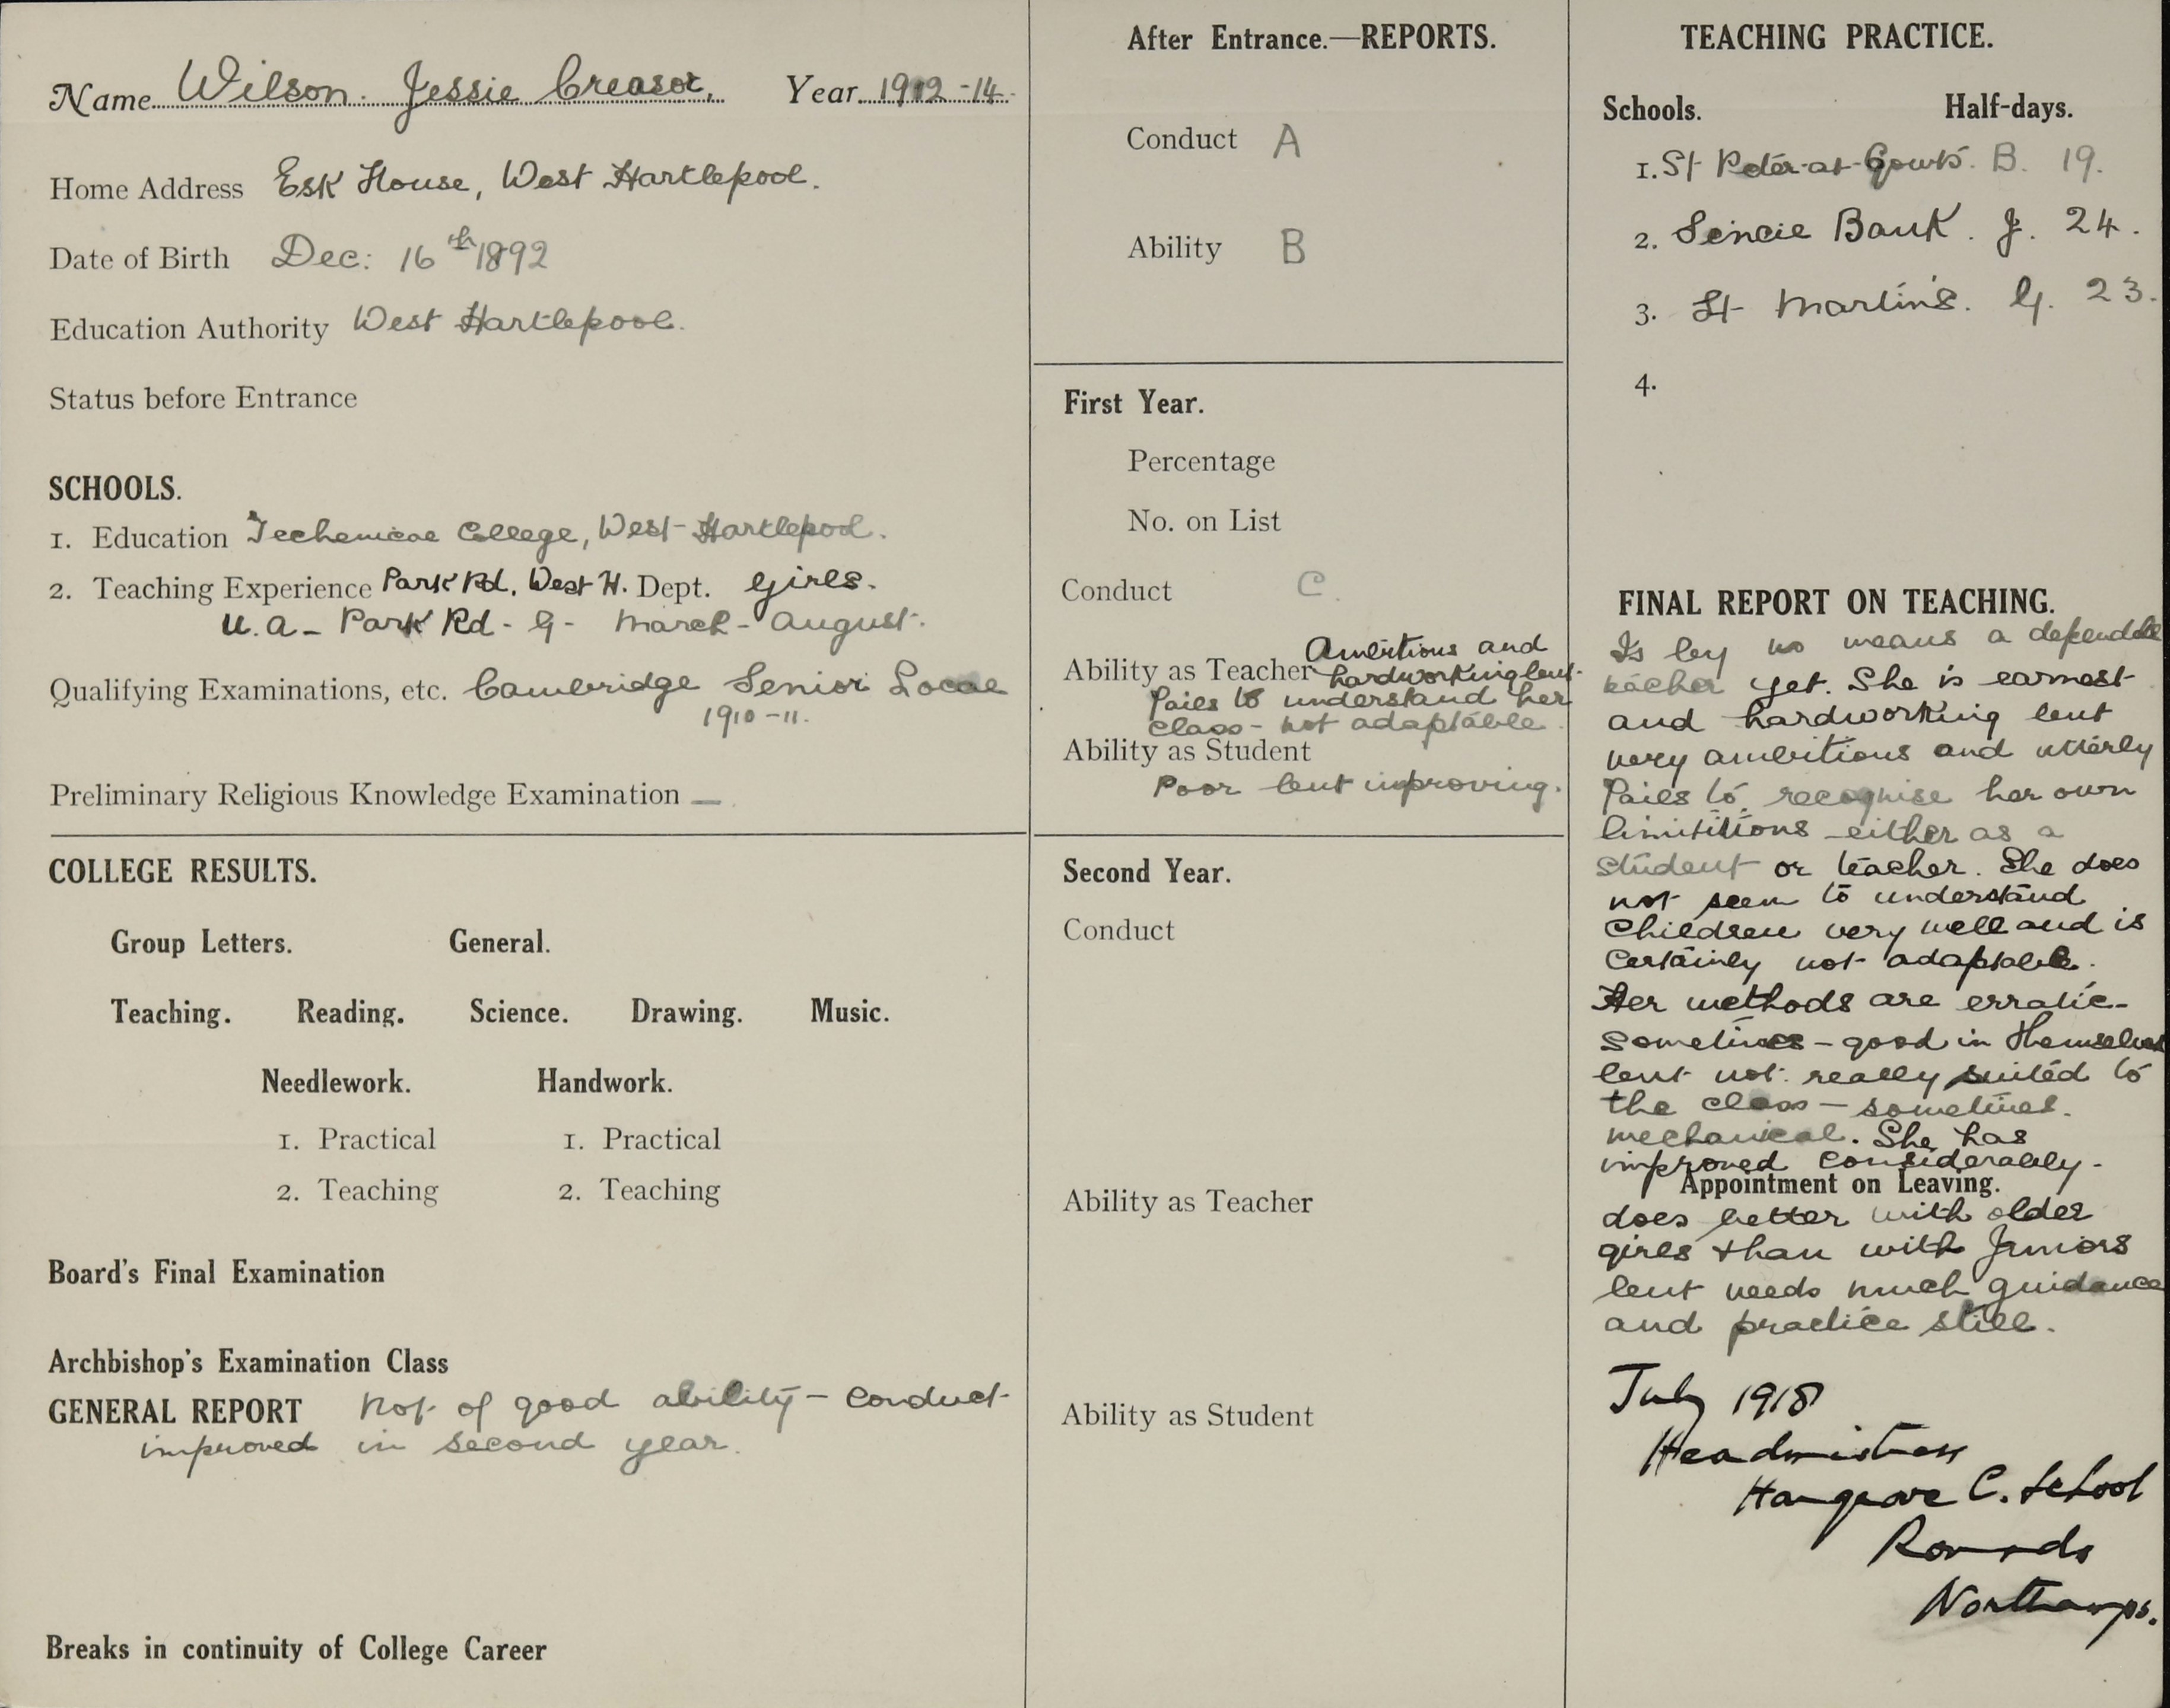 Name Wilson. Jessie Creasor. Year 1912-14.
Home Address Esk House, West Hartlepool.
Date of Birth Dec: 16th 1892
Education Authority West Hartlepool.
Status before Entrance
SCHOOLS.
1. Education Technical College, West Hartlepool.
2. Teaching Experience Park Rd. West H. Dept. Girls.
U.A - Park Rd - G - March - August.
Qualifying Examinations, etc. Cambridge Senior Local
1910-11.
Preliminary Religious Knowledge Examination —
COLLEGE RESULTS.
Group Letters. General.
Teaching. Reading. Science. Drawing. Music.
Needlework. Handwork.
1. Practical 1. Practical
2. Teaching 2. Teaching
Board's Final Examination
Archbishop's Examination Class
GENERAL REPORT Not of good ability - conduct
improved in second year.
Breaks in continuity of College Career
After Entrance.—REPORTS.
Conduct A
Ability B
First Year.
Percentage
No. on List
Conduct C.
Ability as Teacher Ambitious and
hardworking but
fails to understand her
class - not adaptable.
Ability as Student
Poor but improving.
Second Year.
Conduct
Ability as Teacher
Ability as Student
TEACHING PRACTICE.
Schools. Half-days.
1. St Peter-at-Gowts. B. 19.
2. Sincie Bank. J. 24.
3. St Martin's. G. 23.
4.
FINAL REPORT ON TEACHING.
Is by no means a dependable
teacher yet. She is earnest
and hardworking but
very ambitious and utterly
fails to recognise her own
limititions either as a
student or teacher. She does
not seem to understand
children very well and is
certainly not adaptable.
Her methods are erratic -
sometimes - good in themselves
but not really suited to
the class - sometimes.
mechanical. She has
improved considerably -
Appointment on Leaving.
does better with older
girls than with Juniors
but needs much guidance
and practice still.
July 1918
Headmistress
Hargrave C. School
Raunds
Northamps.